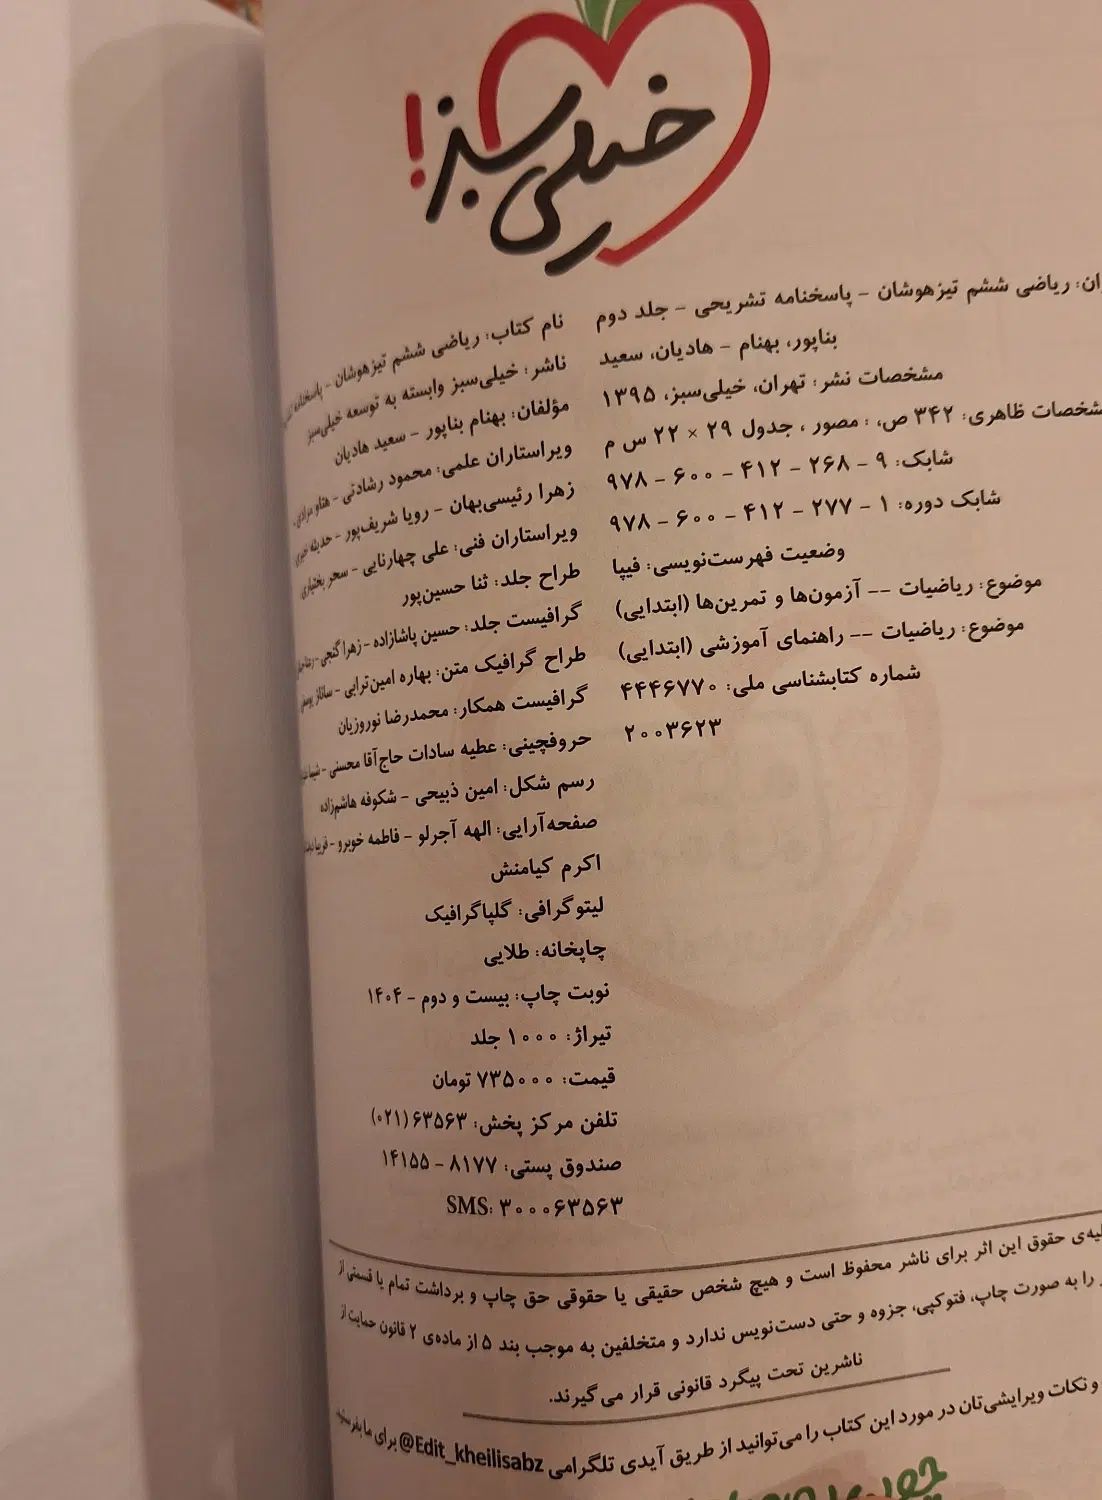 خیلی سبز!
ریاضی ششم تیزهوشان - پاسخنامه تشریحی - جلد دوم
بناپور، بهنام - هادیان، سعید
مشخصات نشر: تهران، خیلی‌سبز، ۱۳۹۵
مشخصات ظاهری: ۳۴۲ ص، : مصور ، جدول ۲۹ × ۲۲ س م
شابک: ۹ - ۲۶۸ - ۴۱۲ - ۶۰۰ - ۹۷۸
شابک دوره: ۱ - ۲۷۷ - ۴۱۲ - ۶۰۰ - ۹۷۸
وضعیت فهرست‌نویسی: فیپا
موضوع: ریاضیات -- آزمون‌ها و تمرین‌ها (ابتدایی)
موضوع: ریاضیات -- راهنمای آموزشی (ابتدایی)
شماره کتابشناسی ملی: ۴۴۴۶۷۷۰
۲۰۰۳۶۲۳
نام کتاب: ریاضی ششم تیزهوشان - پاسخنامه
ناشر: خیلی‌سبز وابسته به توسعه خیلی‌سبز
مؤلفان: بهنام بناپور - سعید هادیان
ویراستاران علمی: محمود رشادتی -
زهرا رئیسی‌بهان - رویا شریف‌پور - حدیثه
ویراستاران فنی: علی چهارنایی - سحر بختیاری
طراح جلد: ثنا حسین‌پور
گرافیست جلد: حسین پاشازاده - زهرا گنجی -
طراح گرافیک متن: بهاره امین‌ترابی - ساناز
گرافیست همکار: محمدرضا نوروزیان
حروفچینی: عطیه سادات حاج‌آقا محسنی -
رسم شکل: امین ذبیحی - شکوفه هاشم‌زاده
صفحه‌آرایی: الهه آجرلو - فاطمه خوبرو -
اکرم کیامنش
لیتوگرافی: گلپاگرافیک
چاپخانه: طلایی
نوبت چاپ: بیست و دوم - ۱۴۰۴
تیراژ: ۱۰۰۰ جلد
قیمت: ۷۳۵۰۰۰ تومان
تلفن مرکز پخش: ۶۳۵۶۳ (۰۲۱)
صندوق پستی: ۸۱۷۷ - ۱۴۱۵۵
SMS: ۳۰۰۰۶۳۵۶۳
حقوق این اثر برای ناشر محفوظ است و هیچ شخص حقیقی یا حقوقی حق چاپ و برداشت تمام یا قسمتی از
را به صورت چاپ، فتوکپی، جزوه و حتی دست‌نویس ندارد و متخلفین به موجب بند ۵ از ماده‌ی ۲ قانون حمایت از
ناشرین تحت پیگرد قانونی قرار می‌گیرند.
و نکات ویرایشی‌تان در مورد این کتاب را می‌توانید از طریق آیدی تلگرامی @Edit_kheilisabz برای ما بفرستید